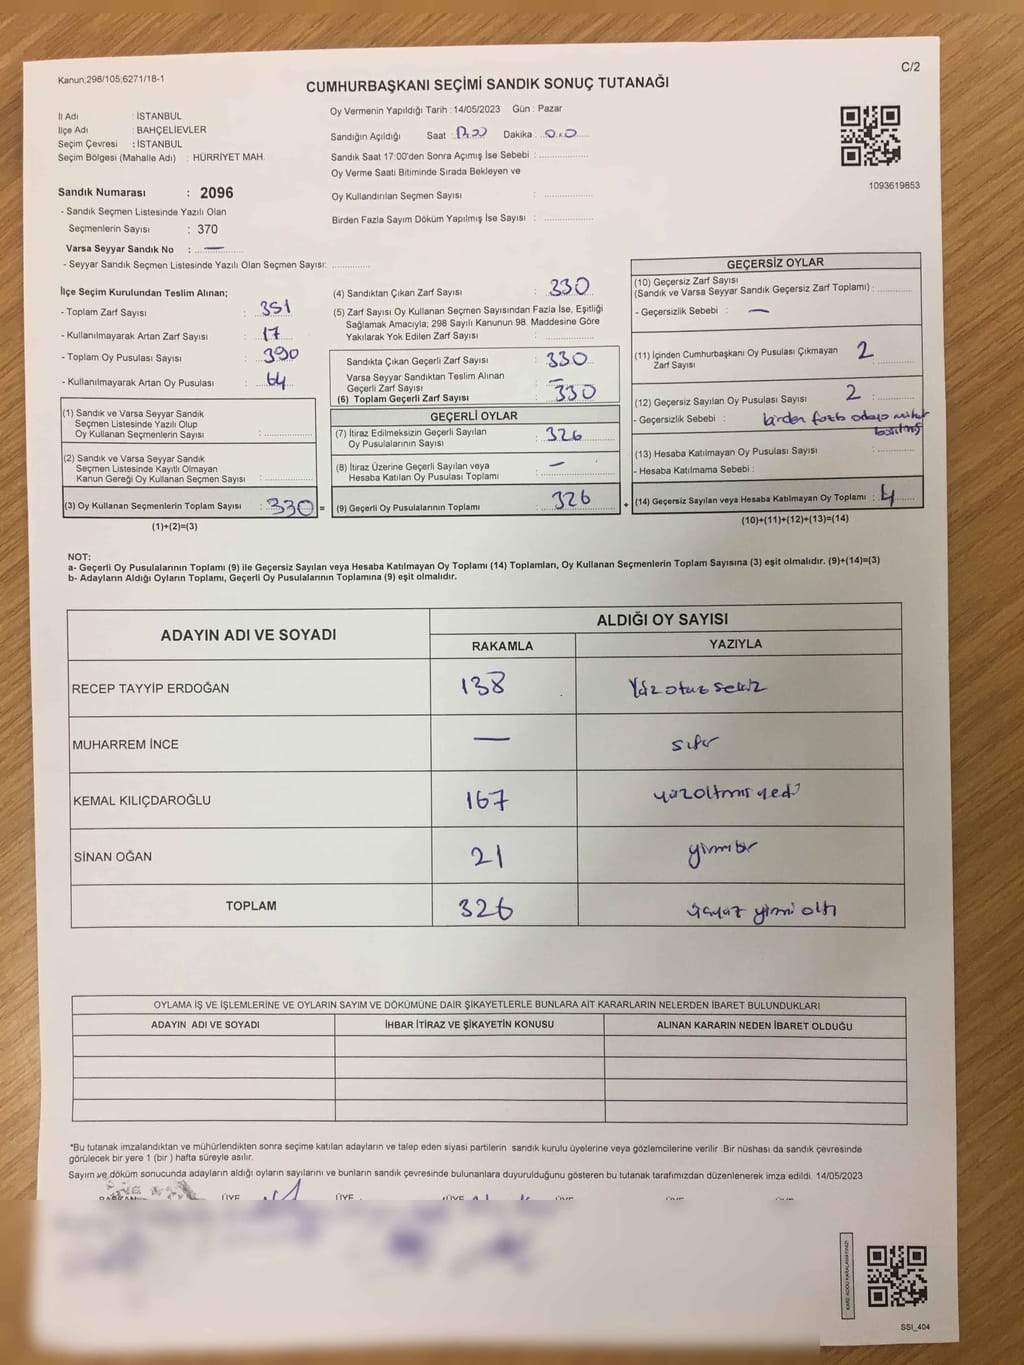 Kanun;298/105;6271/18-1
C/2
CUMHURBAŞKANI SEÇİMİ SANDIK SONUÇ TUTANAĞI
İl Adı : İSTANBUL
İlçe Adı : BAHÇELİEVLER
Seçim Çevresi : İSTANBUL
Seçim Bölgesi (Mahalle Adı) : HÜRRİYET MAH.
Sandık Numarası : 2096
- Sandık Seçmen Listesinde Yazılı Olan
Seçmenlerin Sayısı : 370
Varsa Seyyar Sandık No : —
- Seyyar Sandık Seçmen Listesinde Yazılı Olan Seçmen Sayısı: ..............
Oy Vermenin Yapıldığı Tarih : 14/05/2023 Gün : Pazar
Sandığın Açıldığı Saat : Dakika :
Sandık Saat 17:00'den Sonra Açımış İse Sebebi : ..............
Oy Verme Saati Bitiminde Sırada Bekleyen ve
Oy Kullandırılan Seçmen Sayısı : ..............
Birden Fazla Sayım Döküm Yapılmış İse Sayısı : ..............
1093619853
İlçe Seçim Kurulundan Teslim Alınan;
- Toplam Zarf Sayısı : 351
- Kullanılmayarak Artan Zarf Sayısı : 17
- Toplam Oy Pusulası Sayısı : 390
- Kullanılmayarak Artan Oy Pusulası : 64
(1) Sandık ve Varsa Seyyar Sandık
Seçmen Listesinde Yazılı Olup
Oy Kullanan Seçmenlerin Sayısı : ..............
(2) Sandık ve Varsa Seyyar Sandık
Seçmen Listesinde Kayıtlı Olmayan
Kanun Gereği Oy Kullanan Seçmen Sayısı : ..............
(3) Oy Kullanan Seçmenlerin Toplam Sayısı : 330 =
(1)+(2)=(3)
(4) Sandıktan Çıkan Zarf Sayısı : 330
(5) Zarf Sayısı Oy Kullanan Seçmen Sayısından Fazla İse, Eşitliği
Sağlamak Amacıyla; 298 Sayılı Kanunun 98. Maddesine Göre
Yakılarak Yok Edilen Zarf Sayısı : ..............
Sandıkta Çıkan Geçerli Zarf Sayısı : 330
Varsa Seyyar Sandıktan Teslim Alınan
Geçerli Zarf Sayısı : —
(6) Toplam Geçerli Zarf Sayısı : 330
GEÇERLİ OYLAR
(7) İtiraz Edilmeksizin Geçerli Sayılan
Oy Pusulalarının Sayısı : 326
(8) İtiraz Üzerine Geçerli Sayılan veya
Hesaba Katılan Oy Pusulası Toplamı : —
(9) Geçerli Oy Pusulalarının Toplamı : 326 +
GEÇERSİZ OYLAR
(10) Geçersiz Zarf Sayısı
(Sandık ve Varsa Seyyar Sandık Geçersiz Zarf Toplamı) : ..............
- Geçersizlik Sebebi : —
(11) İçinden Cumhurbaşkanı Oy Pusulası Çıkmayan
Zarf Sayısı : 2
(12) Geçersiz Sayılan Oy Pusulası Sayısı : 2
- Geçersizlik Sebebi : birden fazla adaya mühür
basılmış
(13) Hesaba Katılmayan Oy Pusulası Sayısı : ..............
- Hesaba Katılmama Sebebi :
(14) Geçersiz Sayılan veya Hesaba Katılmayan Oy Toplamı : 4
(10)+(11)+(12)+(13)=(14)
NOT:
a- Geçerli Oy Pusulalarının Toplamı (9) ile Geçersiz Sayılan veya Hesaba Katılmayan Oy Toplamı (14) Toplamları, Oy Kullanan Seçmenlerin Toplam Sayısına (3) eşit olmalıdır. (9)+(14)=(3)
b- Adayların Aldığı Oyların Toplamı, Geçerli Oy Pusulalarının Toplamına (9) eşit olmalıdır.
ADAYIN ADI VE SOYADI ALDIĞI OY SAYISI
RAKAMLA YAZIYLA
RECEP TAYYİP ERDOĞAN 138 Yüz otuz sekiz
MUHARREM İNCE — sıfır
KEMAL KILIÇDAROĞLU 167 yüzaltmış yedi
SİNAN OĞAN 21 yirmibir
TOPLAM 326 üçyüz yirmi altı
OYLAMA İŞ VE İŞLEMLERİNE VE OYLARIN SAYIM VE DÖKÜMÜNE DAİR ŞİKAYETLERLE BUNLARA AİT KARARLARIN NELERDEN İBARET BULUNDUKLARI
ADAYIN ADI VE SOYADI İHBAR İTİRAZ VE ŞİKAYETİN KONUSU ALINAN KARARIN NEDEN İBARET OLDUĞU
*Bu tutanak imzalandıktan ve mühürlendikten sonra seçime katılan adayların ve talep eden siyasi partilerin sandık kurulu üyelerine veya gözlemcilerine verilir .Bir nüshası da sandık çevresinde
görülecek bir yere 1 (bir ) hafta süreyle asılır.
Sayım ve döküm sonucunda adayların aldığı oyların sayılarını ve bunların sandık çevresinde bulunanlara duyurulduğunu gösteren bu tutanak tarafımızdan düzenlenerek imza edildi. 14/05/2023
BAŞKAN ÜYE ÜYE ÜYE ÜYE ÜYE ÜYE
SSI_404